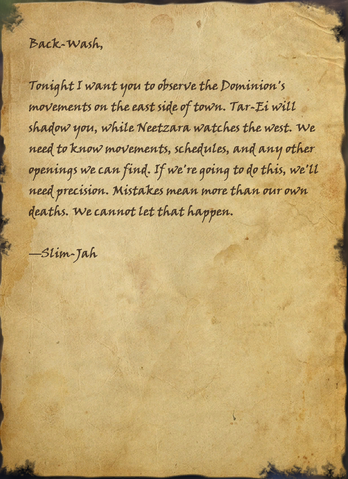 Back-Wash,
Tonight I want you to observe the Dominion's
movements on the east side of town. Tar-Ei will
shadow you, while Neetzara watches the west. We
need to know movements, schedules, and any other
openings we can find. If we're going to do this, we'll
need precision. Mistakes mean more than our own
deaths. We cannot let that happen.
—Slim-Jah